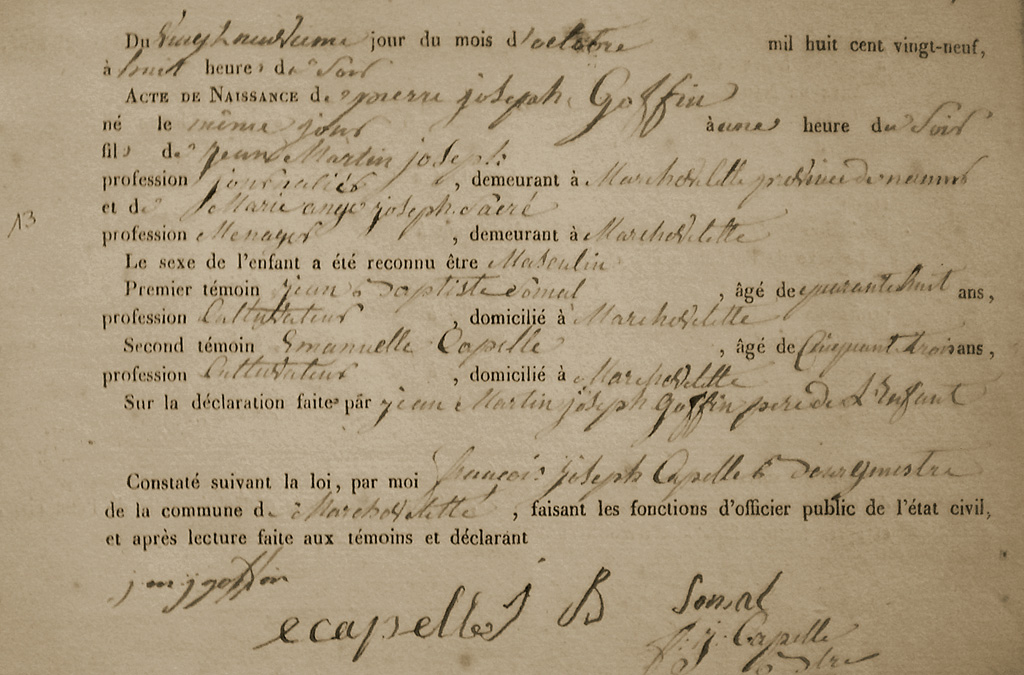 Du vingt neuvieme jour du mois d'octobre mil huit cent vingt-neuf,
à huit heures du Soir
ACTE DE NAISSANCE de pierre joseph Goffin
né le même jour à une heure du Soir
fils de jean Martin joseph
profession journalier, demeurant à Marchovelette province de namur
et de Marie ange joseph Sacré
profession Menager, demeurant à Marchovelette
Le sexe de l'enfant a été reconnu être Masculin
Premier témoin jean Baptiste Somal, âgé de quarante huit ans,
profession Cultivateur, domicilié à Marchovelette
Second témoin Emanuelle Capelle, âgé de Cinquant trois ans,
profession Cultivateur, domicilié à Marchovelette
Sur la déclaration faite par jean Martin joseph Goffin pere de L'Enfant
13
Constaté suivant la loi, par moi françois joseph Capelle Bourgmestre
de la commune de Marchovelette, faisant les fonctions d'officier public de l'état civil,
et après lecture faite aux témoins et déclarant
j m j goffin
e capelle J B Somal
f. j. Capelle